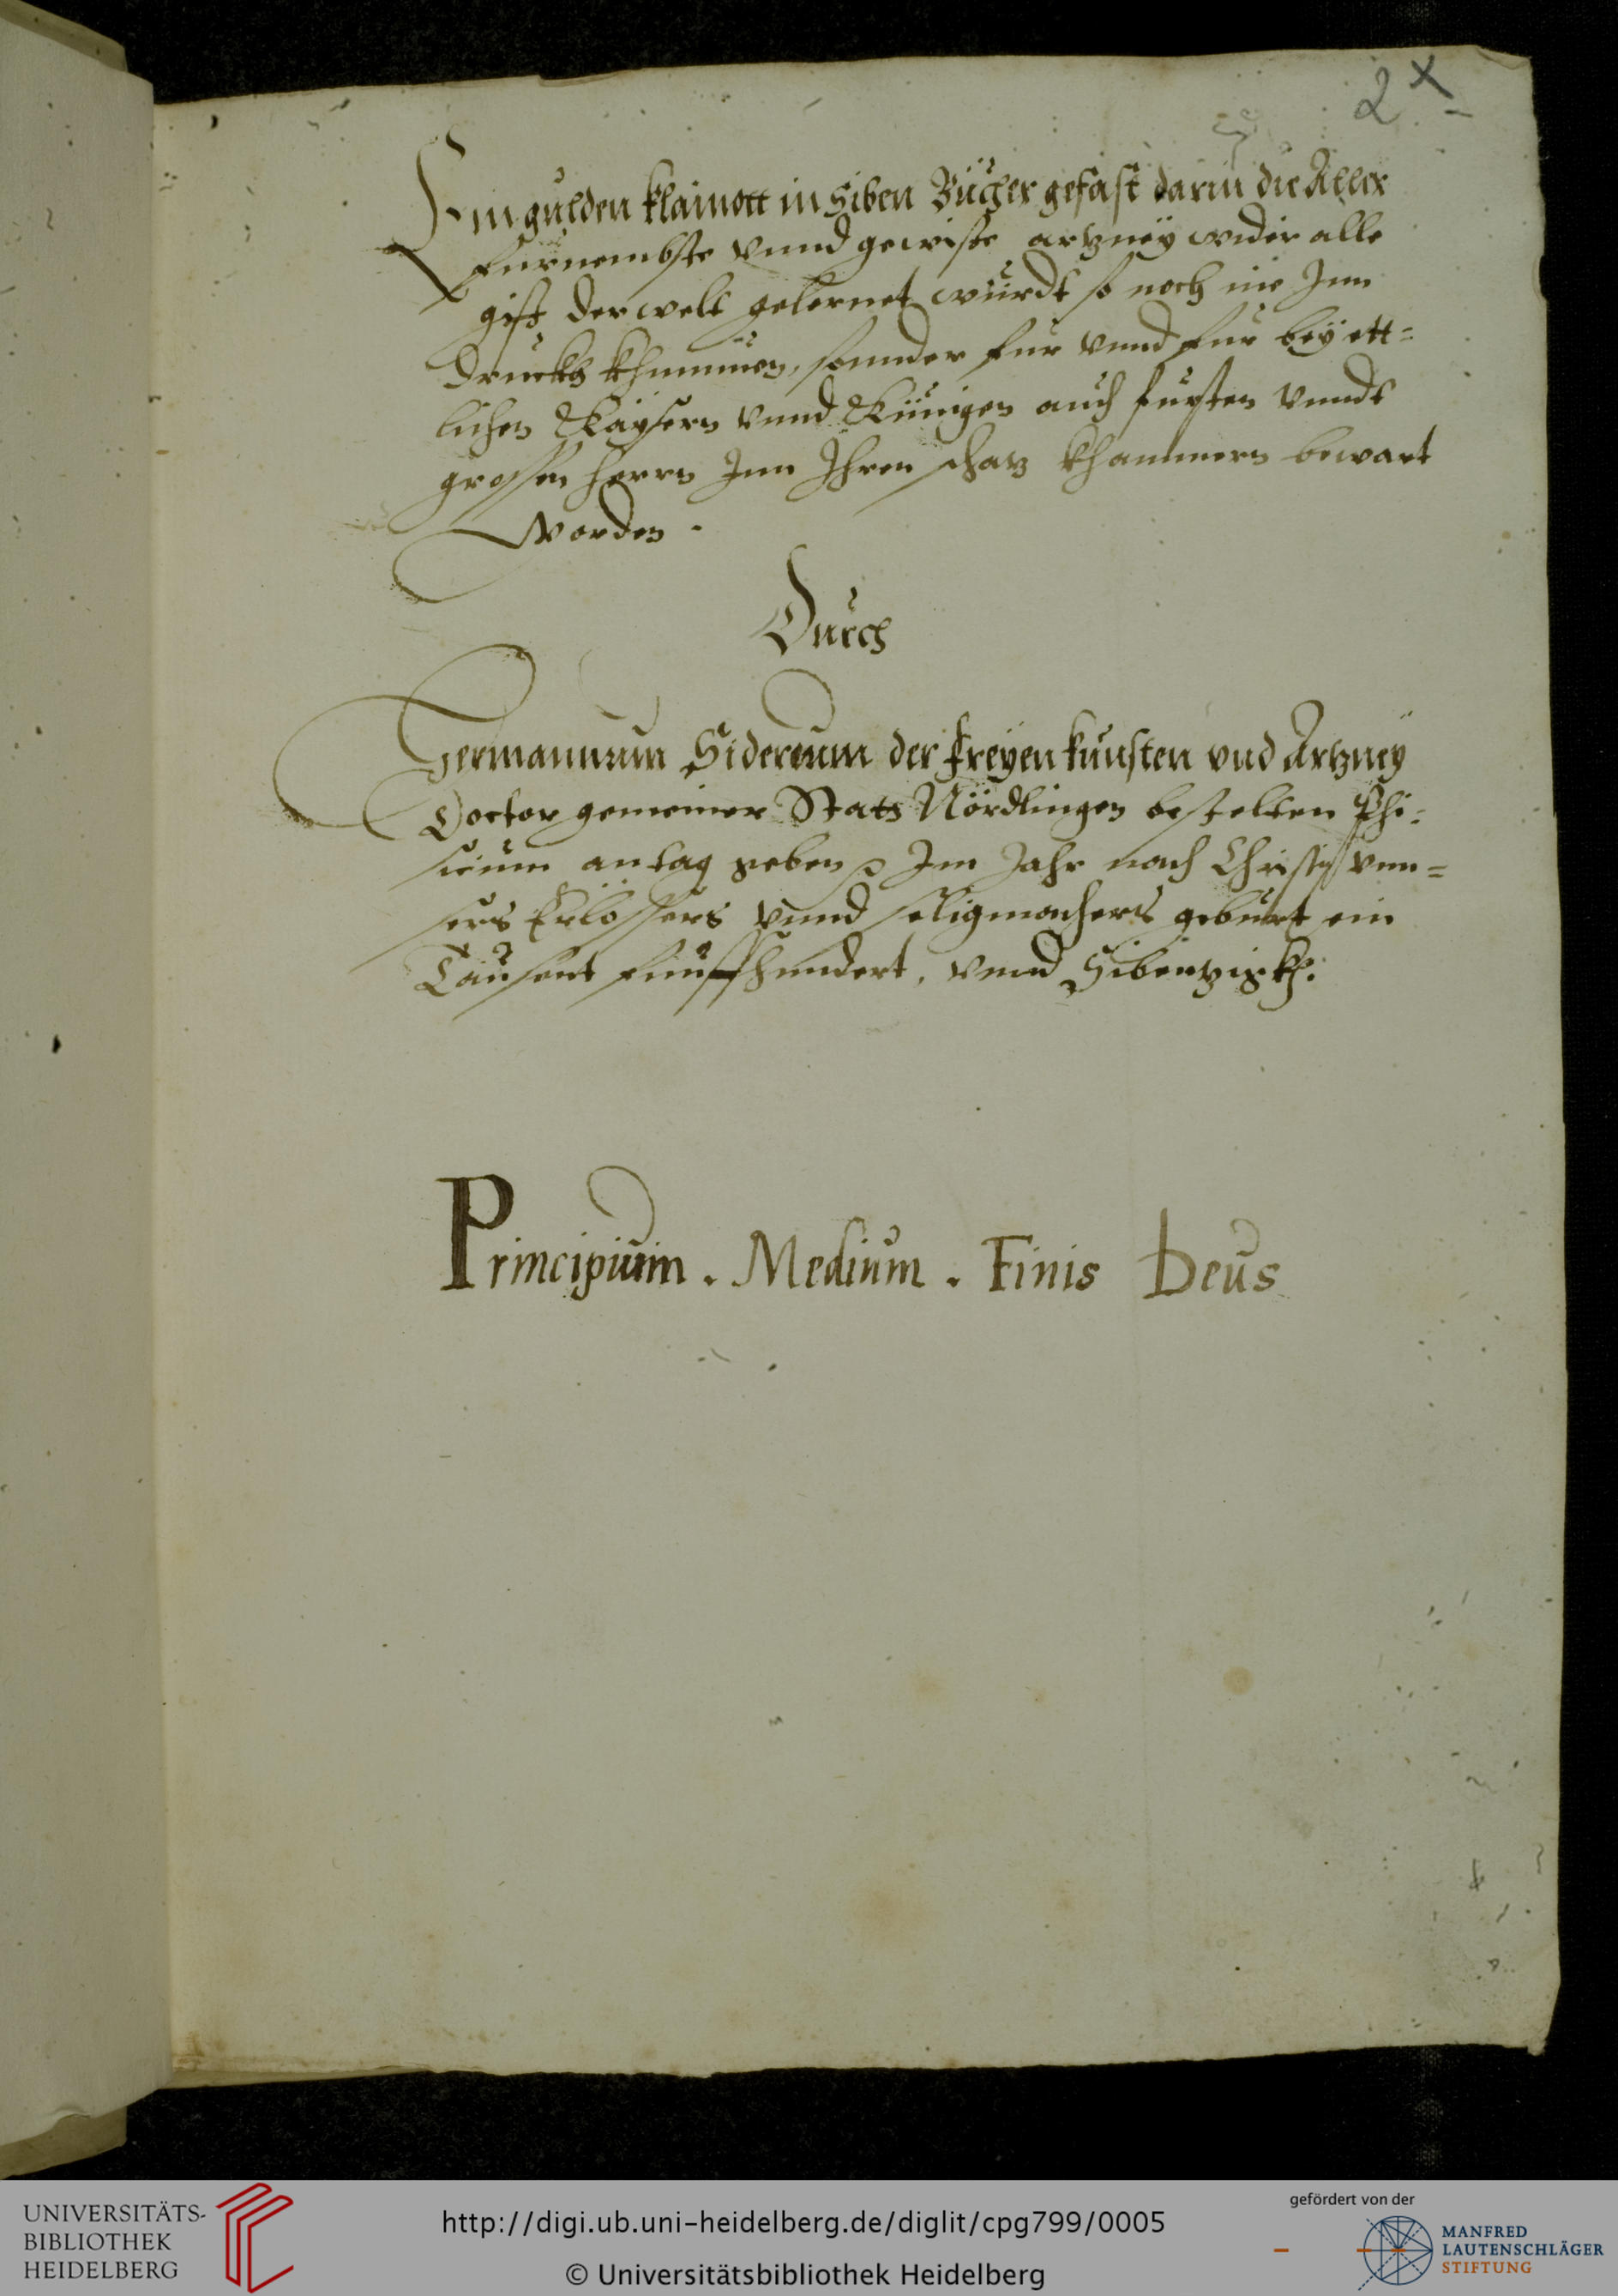 2 x
Ein gulden klainott in Siben Bücher gefast darin die Aller
furnembste vnnd gewisse artzney wider alle
gifft der welt gelernet würdt so noch nie Inn
druckh khummen, sonnder fur vnnd fur bey ett=
lichen Kaysern vnnd Künigen auch fursten vnndt
grossen herrn Inn Ihren schatz khammern bewart
worden.
Durch
Germannum Sidereum der freyen kunsten vnd Artzney
Doctor gemeiner Stats Nördlingen bestelten Phi=
sicum an tag geben Im Jahr nach Christy vnn=
sers Erlössers vnnd seligmachers geburt ein
Tausent funffhundert, vnnd Sibentzigkh.
Principium . Medium . Finis Deus
UNIVERSITÄTS-
BIBLIOTHEK
HEIDELBERG
http://digi.ub.uni-heidelberg.de/diglit/cpg799/0005
© Universitätsbibliothek Heidelberg
gefördert von der
MANFRED
LAUTENSCHLÄGER
STIFTUNG